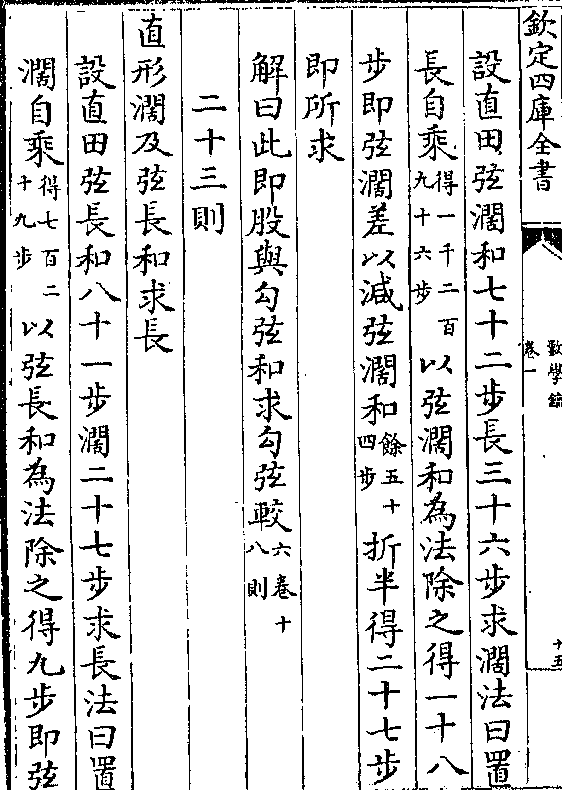 欽定四庫全書
數學鑰
卷一
十五
設直田弦濶和七十二步長三十六步求濶法曰置
長自乘得一千二百九十六步以弦濶和為法除之得一十八
步即弦濶差以減弦濶和餘五十四步折半得二十七步
即所求
解曰此即股與勾弦和求勾弦較六卷十八則
二十三則
直形濶及弦長和求長
設直田弦長和八十一步濶二十七步求長法曰置
濶自乘得七百二十九步以弦長和為法除之得九步即弦